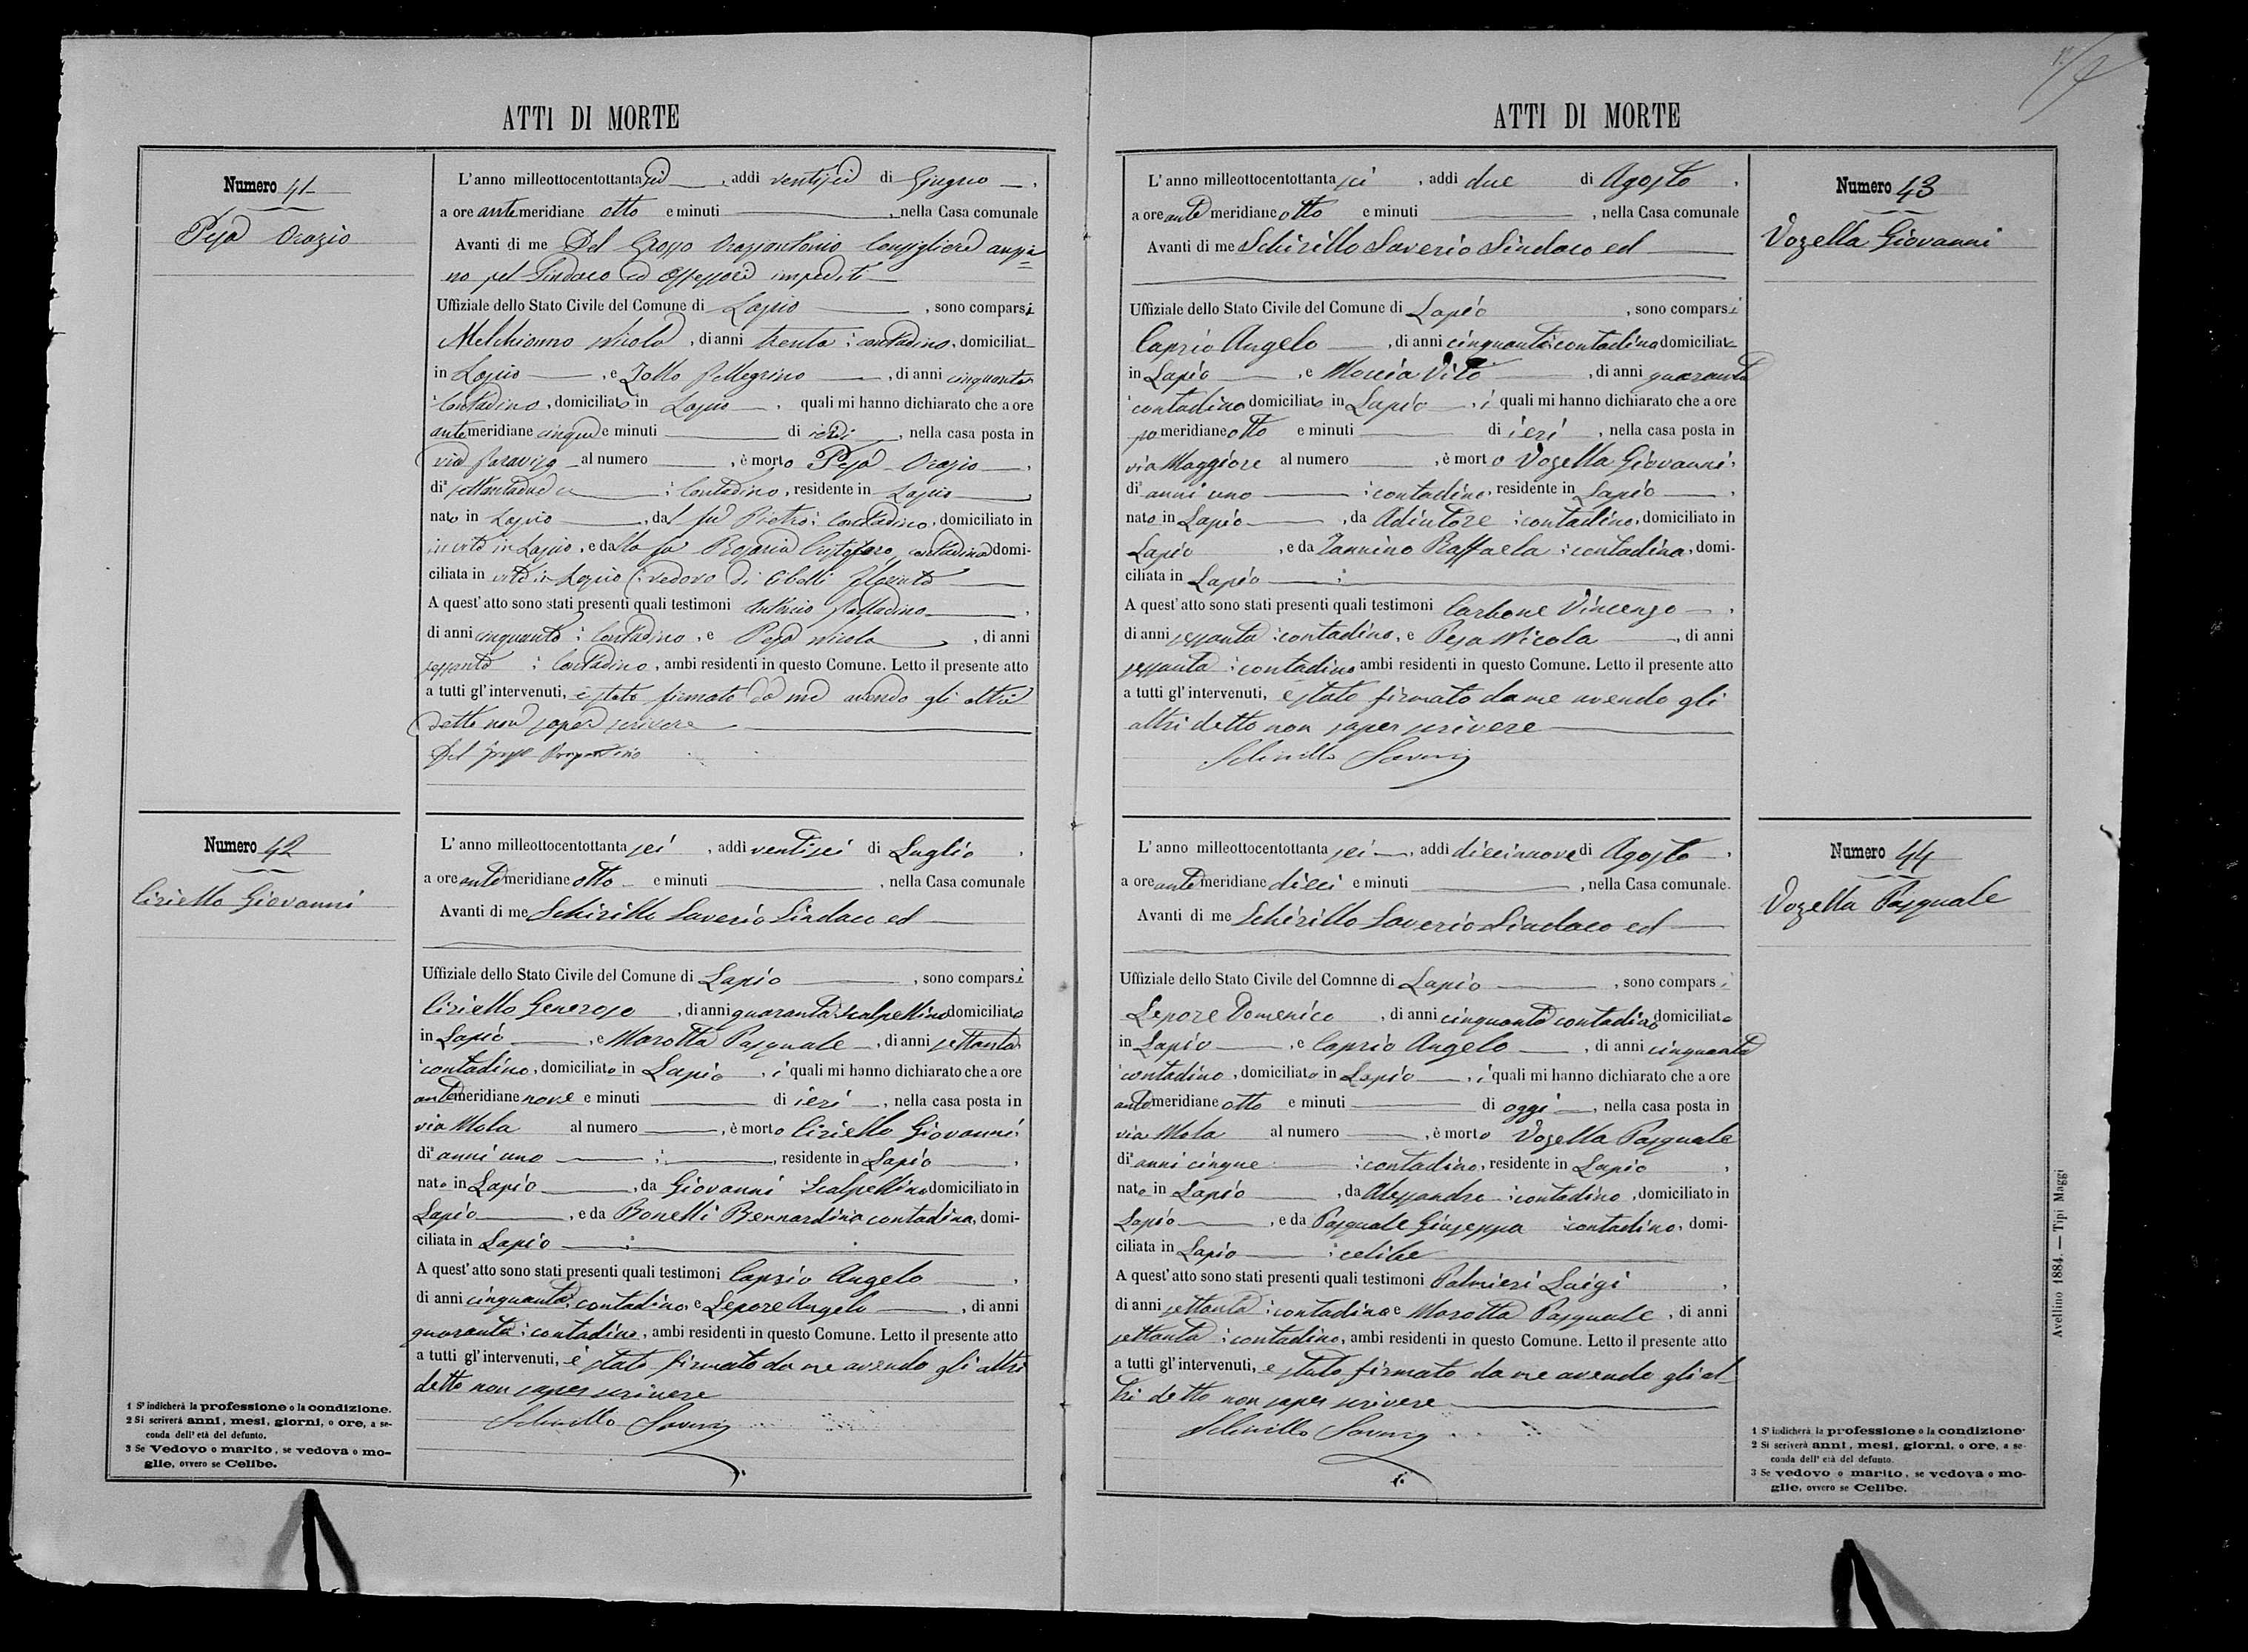 ATTI DI MORTE
Numero 41
Pesa Orazio
L'anno milleottocentottantasei, addì ventisei di Giugno,
a ore antemeridiane otto e minuti, nella Casa comunale
Avanti di me Del Grosso Consigliere anzia=
no pel Sindaco ed Assessori impediti
Uffiziale dello Stato Civile del Comune di Lapio, sono comparsi
Melchionno Nicola, di anni trenta contadino, domiciliat
in Lapio, e Zollo Pellegrino, di anni cinquanta
contadino, domiciliato in Lapio, quali mi hanno dichiarato che a ore
antemeridiane cinque e minuti di ieri, nella casa posta in
via al numero, è morto Pesa Orazio,
di² settantadue contadino, residente in Lapio,
nato in Lapio, dal fu Pietro contadino, domiciliato in
in vita in Lapio, e dalla fu Rosaria Cristofaro, contadina domi-
ciliata in vita in Lapio vedovo di
A quest'atto sono stati presenti quali testimoni,
di anni cinquanta contadino, e Pesa Nicola, di anni
sessanta contadino, ambi residenti in questo Comune. Letto il presente atto
a tutti gl'intervenuti, è stato firmato da me avendo gli altri
detto non saper scrivere
Del Grosso
Numero 42
Ciriello Giovanni
L'anno milleottocentottanta sei, addì ventisei di Luglio,
a ore antemeridiane otto e minuti, nella Casa comunale
Avanti di me Schirillo Saverio Sindaco ed
Uffiziale dello Stato Civile del Comune di Lapio, sono comparsi
Ciriello Generoso, di anni quaranta scalpellino domiciliato
in Lapio, e Marotta Pasquale, di anni settanta
contadino, domiciliato in Lapio, i quali mi hanno dichiarato che a ore
antemeridiane nove e minuti di ieri, nella casa posta in
via Mola al numero, è morto Ciriello Giovanni,
di² anni uno, residente in Lapio,
nato in Lapio, da Giovanni Scalpellino domiciliato in
Lapio, e da Bonelli Bernardina contadina, domi-
ciliata in Lapio
A quest'atto sono stati presenti quali testimoni Caprio Angelo,
di anni cinquanta, contadino, e Lepore Angelo, di anni
quaranta contadino, ambi residenti in questo Comune. Letto il presente atto
a tutti gl'intervenuti, è stato firmato da me avendo gli altri
detto non saper scrivere
Schirillo Saverio
1 S'indicherà la professione o la condizione.
2 Si scriverà anni, mesi, giorni, o ore, a se-
conda dell'età del defunto.
3 Se Vedovo o marito, se vedova o mo-
glie, ovvero se Celibe.
ATTI DI MORTE
L'anno milleottocentottanta sei, addì due di Agosto,
a ore antemeridiane otto e minuti, nella Casa comunale
Avanti di me Schirillo Saverio Sindaco ed
Uffiziale dello Stato Civile del Comune di Lapio, sono comparsi
Caprio Angelo, di anni cinquanta contadino domiciliato
in Lapio, e Moccia Vito, di anni quaranta
contadino domiciliato in Lapio, i quali mi hanno dichiarato che a ore
pomeridiane otto e minuti di ieri, nella casa posta in
via Maggiore al numero, è morto Vozella Giovanni,
di² anni uno contadino, residente in Lapio,
nato in Lapio, da Adiutore contadino, domiciliato in
Lapio, e da Iannino Raffaela contadina, domi-
ciliata in Lapio
A quest'atto sono stati presenti quali testimoni Carbone Vincenzo,
di anni sessanta contadino, e Pesa Nicola, di anni
sessanta contadino ambi residenti in questo Comune. Letto il presente atto
a tutti gl'intervenuti, è stato firmato da me avendo gli
altri detto non saper scrivere
Schirillo Saverio
Numero 43
Vozella Giovanni
L'anno milleottocentottanta sei, addì diecianove di Agosto,
a ore antemeridiane dieci e minuti, nella Casa comunale.
Avanti di me Schirillo Saverio Sindaco ed
Uffiziale dello Stato Civile del Comnne di Lapio, sono comparsi
Lepore Domenico, di anni cinquanta contadino domiciliato
in Lapio, e Caprio Angelo, di anni cinquanta
contadino, domiciliato in Lapio, i quali mi hanno dichiarato che a ore
antemeridiane otto e minuti di oggi, nella casa posta in
via Mola al numero, è morto Vozella Pasquale
di² anni cinque contadino, residente in Lapio,
nato in Lapio, da Alessandro contadino, domiciliato in
Lapio, e da Pasquale Giuseppa contadino, domi-
ciliata in Lapio celibe
A quest'atto sono stati presenti quali testimoni Palmieri Luigi,
di anni settanta contadino e Marotta Pasquale, di anni
settanta contadino, ambi residenti in questo Comune. Letto il presente atto
a tutti gl'intervenuti, è stato firmato da me avendo gli al-
tri detto non saper scrivere
Schirillo Saverio
Numero 44
Vozella Pasquale
1 S'indicherà la professione o la condizione.
2 Si scriverà anni, mesi, giorni, o ore, a se-
conda dell'età del defunto.
3 Se vedovo o marito, se vedova o mo-
glie, ovvero se Celibe.
Avellino 1884.—Tipi Maggi